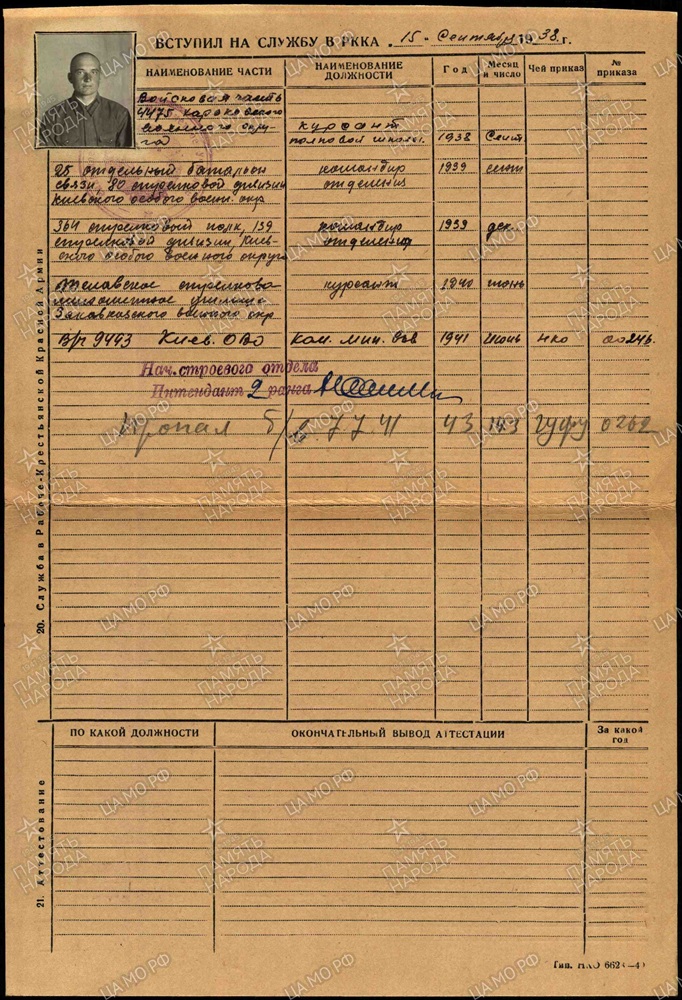 ВСТУПИЛ НА СЛУЖБУ В РККА 15 - Сентября 1938 г.
НАИМЕНОВАНИЕ ЧАСТИ
НАИМЕНОВАНИЕ ДОЛЖНОСТИ
Год
Месяц и число
Чей приказ
№ приказа
Войсковая часть
4475 харьковского
военного окру-
га
курсант
полковой школы
1938 Сент.
25 отдельный батальон
связи, 80 стрелковой дивизии
Киевского особого воен. окр
командир
отделения
1939 сент
364 стрелковый полк, 139
стрелковой дивизии Киев-
ского особого военного округа
командир
отделения
1939 дек.
стрелково
миномётное училище
Закавказского военного окр
курсант
1940 июнь
В/ч 9493 Киев. ОВО
Ком. мин. взв
1941 Июнь НКО 00246.
Нач. строевого отдела
Интендант 2 ранга
Пропал б/в. 7.7.41 43 14.3 ГУФУ 0262
20. Служба в Рабоче-Крестьянской Красной Армии
ПО КАКОЙ ДОЛЖНОСТИ
ОКОНЧАТЕЛЬНЫЙ ВЫВОД АТТЕСТАЦИИ
За какой год
21. Аттестование
Тип. НКО 662
ЦАМО.РФ
ПАМЯТЬ НАРОДА